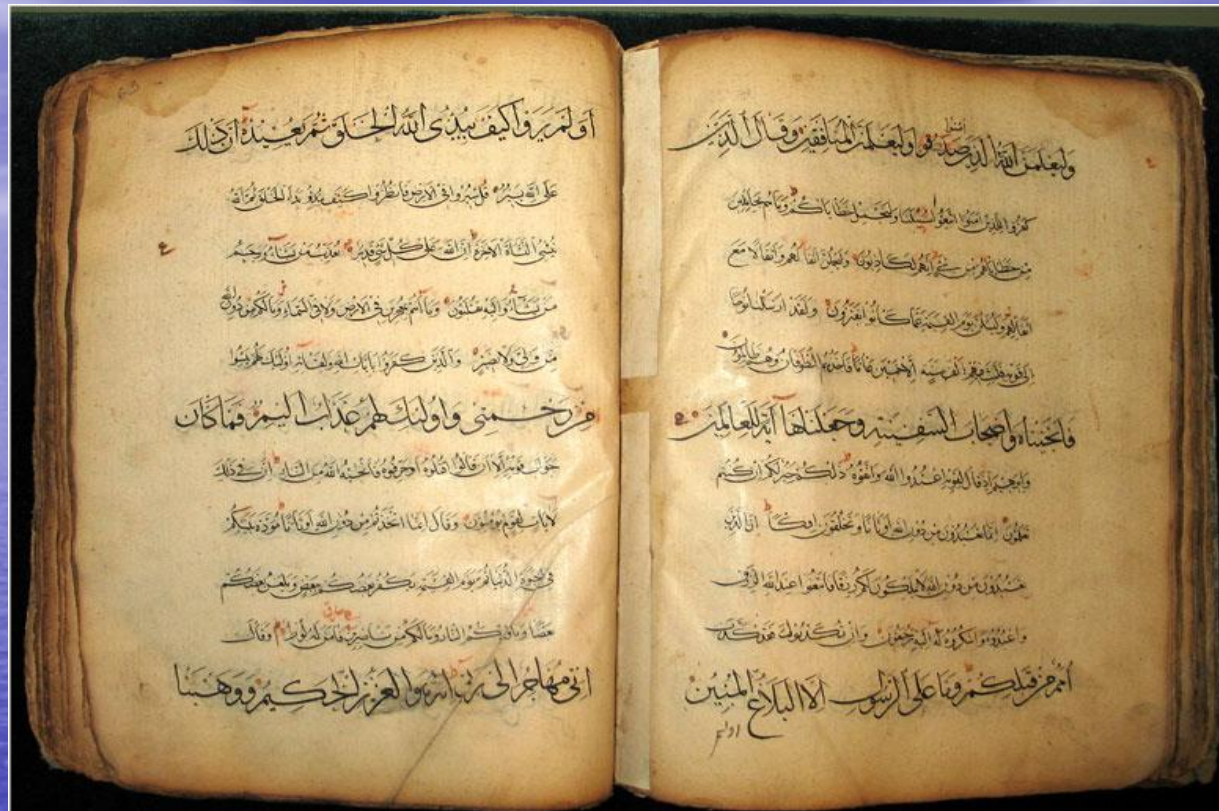 وليعلمن الله الذين صدقوا وليعلمن المنافقين وقال الذين
كفروا للذين امنوا اتبعوا سبيلنا ولنحمل خطاياكم وما هم بحاملين
من خطاياهم من شئ انهم لكاذبون وليحملن اثقالهم واثقالا مع
اثقالهم وليسئلن يوم القيمة عما كانوا يفترون ولقد ارسلنا نوحا
الى قومه فلبث فيهم الف سنة الا خمسين عاما فاخذهم الطوفان وهم ظالمون
فانجيناه واصحاب السفينة وجعلناها آية للعالمين
وابرهيم اذ قال لقومه اعبدوا الله واتقوه ذلكم خير لكم ان كنتم
تعلمون انما تعبدون من دون الله اوثانا وتخلقون افكا ان الذين
تعبدون من دون الله لا يملكون لكم رزقا فابتغوا عند الله الرزق
واعبدوه واشكروا له اليه ترجعون وان تكذبوا فقد كذب
امم من قبلكم وما على الرسول الا البلاغ المبين
اولم
اولم يروا كيف يبدئ الله الخلق ثم يعيده ان ذلك
على الله يسير قل سيروا في الارض فانظروا كيف بدأ الخلق ثم الله
ينشئ النشأة الاخرة ان الله على كل شئ قدير يعذب من يشاء ويرحم
من يشاء واليه تقلبون وما انتم بمعجزين في الارض ولا في السماء وما لكم من دون الله
من ولي ولا نصير والذين كفروا بايات الله ولقائه اولئك يئسوا
من رحمتي واولئك لهم عذاب اليم فما كان
جواب قومه الا ان قالوا اقتلوه او حرقوه فانجيه الله من النار ان في ذلك
لايات لقوم يؤمنون وقال انما اتخذتم من دون الله اوثانا مودة بينكم
في الحيوة الدنيا ثم يوم القيمة يكفر بعضكم ببعض ويلعن بعضكم
بعضا ومأويكم النار وما لكم من ناصرين فامن له لوط وقال
اني مهاجر الى ربي انه هو العزيز الحكيم ووهبنا